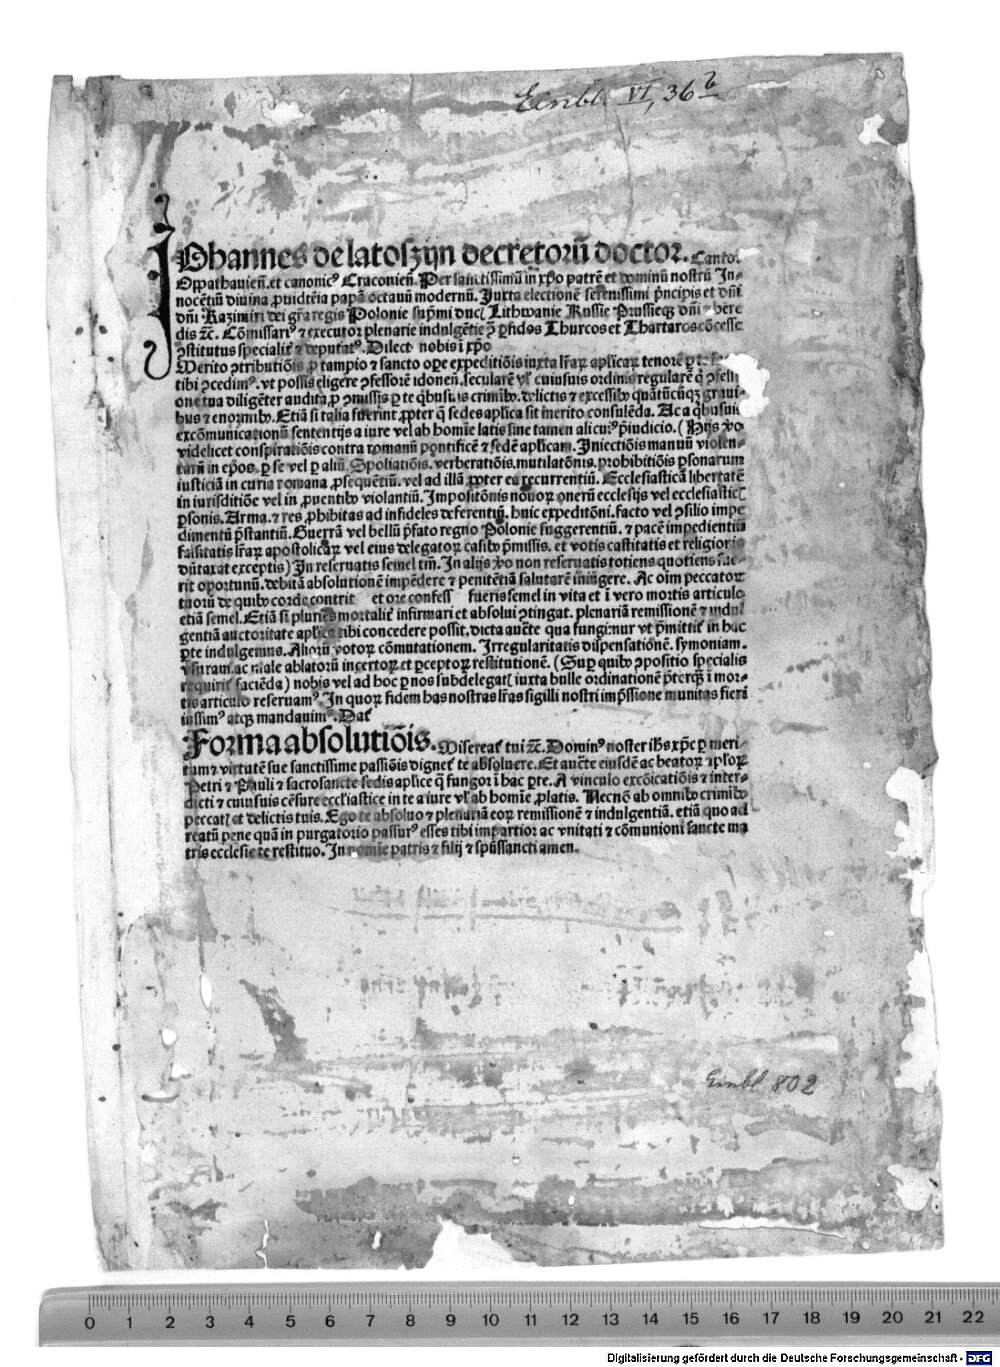 Einbl. VI, 36 b
Johannes de latoszijn decretorũ doctor. Cantor
Oppathauieñ. et canonicꝰ Craconieñ. Per sanctissimũ in xp̃o patrẽ et dominũ nostrũ In-
nocẽtiũ diuina ꝓuidẽtia papã octauũ modernũ. Juxta electionẽ serenissimi p̃ncipis et dñi.
dñi Kazimiri dei gr̃a regis Polonie sup̃mi ducꝭ Lithwanie Russie Prussieqꝫ dñi ⁊ here
dis ⁊c̃. Cõmissariꝰ ⁊ executor plenarie indulgẽtie ꝓ̃ ꝑfidos Thurcos et Thartaros cõcesse
ꝯstitutus specialit̃ ⁊ deputatꝰ. Dilect nobis ĩ xp̃o
Merito ꝯtributiõis ꝓ tam pio ⁊ sancto oꝑe expeditiõis iuxta lr̃aꝝ aplicaꝝ tenorẽ ꝑ te
tibi ꝯcedimꝰ. vt possis eligere ꝯfessorẽ idoneñ. secularẽ vl̃ cuiusuis ordinis regularẽ q̃ ꝯfessi
one tua diligẽter audita, ꝓ ꝯmissis ꝑ te qͥbusuis criminibꝰ. delictis ⁊ excessibꝰ quãtũcũqꝫ graui-
bus ⁊ enormibꝰ. Etiã si talia fuerint, ꝓpter q̃ sedes aplica sit merito consulẽda. Ac a qͥbusuis
excõmunicationũ sententijs a iure vel ab homĩe latis sine tamen alicuiꝰ p̃iudicio. (Hijs ꝟo
videlicet conspiratiõis contra romanũ pontificẽ ⁊ sedẽ aplicam. Iniectiõis manuũ violen-
tarũ in ep̃os. ꝑ se vel ꝑ aliũ. Spoliatiõis. verberatiõis. mutilatõnis. prohibitiõis ꝑsonarum
iusticiã in curia romana ꝓsequẽtiũ. vel ad illã ꝓpter eã recurrentiũ. Ecclesiasticã libertatẽ
in iurisditiõe vel in ꝓuentibꝰ violantiũ. Impositõnis nouoꝝ onerũ ecclesijs vel ecclesiasticꝭ
ꝑsonis. Arma. ⁊ res ꝓhibitas ad infideles deferentiũ. huic expeditõni. facto vel ꝯsilio impe
dimentũ p̃stantiũ. Guerrã vel bellũ p̃fato regno Polonie suggerentiũ. ⁊ pacẽ impedientiũ
falsitatis lr̃aꝝ apostolicaꝝ vel eius delegatoꝝ casibꝰ p̃missis. et votis castitatis et religionis
dũtaxat exceptis) In reseruatis semel tm̃. In alijs ꝟo non reseruatis totiens quotiens fue-
rit oportunũ. debitã absolutionẽ impẽdere ⁊ penitẽtiã salutarẽ iniũgere. Ac oĩm peccatoꝝ
tuorũ de quibꝰ corde contrit et ore confess fueris semel in vita et ĩ vero mortis articulo
etiã semel. Etiã si pluries mortalit̃ infirmari et absolui ꝯtingat. plenariã remissionẽ ⁊ indul
gentiã auctoritate aplica tibi concedere possit. dicta auc̃te qua fungimur vt p̃mittit̃ in hac
ꝑte indulgemus. Aliorũ votoꝝ cõmutationem. Irregularitatis dispensationẽ. symoniam.
vsuram. ac male ablatorũ incertoꝝ et ꝑceptoꝝ restitutionẽ. (Suꝑ quibꝰ ꝯpositio specialis
requirit̃ faciẽda) nobis vel ad hoc ꝑ nos subdelegatꝭ iuxta bulle ordinationẽ p̃terqꝫ ĩ mor-
tis articulo reseruamꝰ. In quoꝝ fidem has nostras lr̃as sigilli nostri imp̃ssione munitas fieri
iussimꝰ atqꝫ mandauimꝰ. Dat̃
Forma absolutiõis. Misereat̃ tui ⁊c̃. Dominꝰ noster ihs̃ xp̃c ꝑ meri-
tum ⁊ virtutẽ sue sanctissime passiõis dignet̃ te absoluere. Et auc̃te eiusdẽ ac beatoꝝ aploꝝ
Petri ⁊ Pauli ⁊ sacrosancte sedis aplice q̃ fungor ĩ hac ꝑte. A vinculo excõicatiõis ⁊ inter-
dicti ⁊ cuiusuis cẽsure eccl̃iastice in te a iure vl̃ ab homĩe ꝓlatis. Necnõ ab omnibꝰ criminibꝰ
peccatꝭ et delictis tuis. Ego te absoluo ⁊ plenariã eoꝝ remissionẽ ⁊ indulgentiã. etiã quo ad
reatũ pene quã in purgatorio passurꝰ esses tibi impartior ac vnitati ⁊ cõmunioni sancte ma
tris ecclesie te restituo. In nomĩe patris ⁊ filij ⁊ spũssancti amen.
Einbl 802
0 1 2 3 4 5 6 7 8 9 10 11 12 13 14 15 16 17 18 19 20 21 22
Digitalisierung gefördert durch die Deutsche Forschungsgemeinschaft - DFG